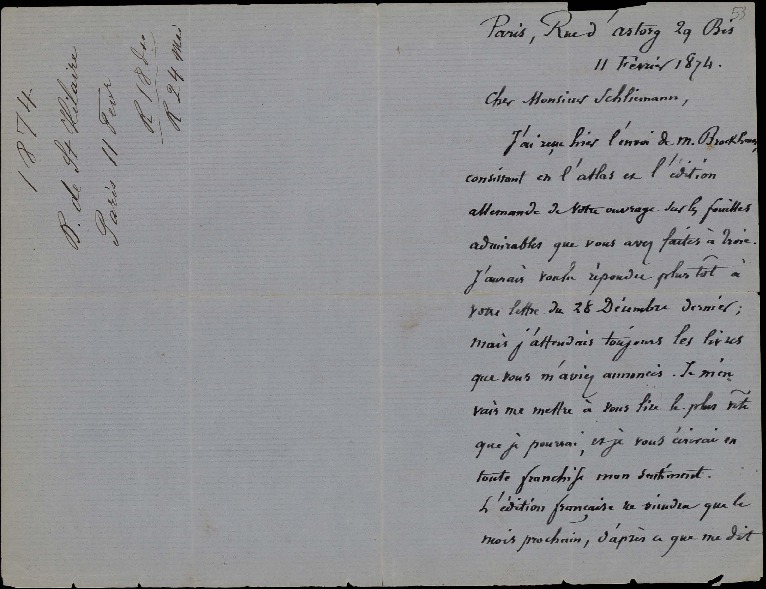 53
Paris, Rue d'astorg 29 Bis
11 Février 1874.
Cher Monsieur Schliemann,
J'ai reçu hier l'envoi de M. Brockhaus,
consistant en l'atlas et l'édition
allemande de votre ouvrage sur les fouilles
admirables que vous avez faites à Troie.
J'aurais voulu répondre plus tôt à
votre lettre du 28 Décembre dernier;
mais j'attendais toujours les livres
que vous m'aviez annoncés. Je m'en
vais me mettre à vous lire le plus vite
que je pourrai, et je vous écrirai en
toute franchise mon sentiment.
L'édition française ne viendra que le
mois prochain, d'après ce que me dit
1874
B. de St Hilaire
Paris 11 Fevr
R 18 du
R 24 Mai